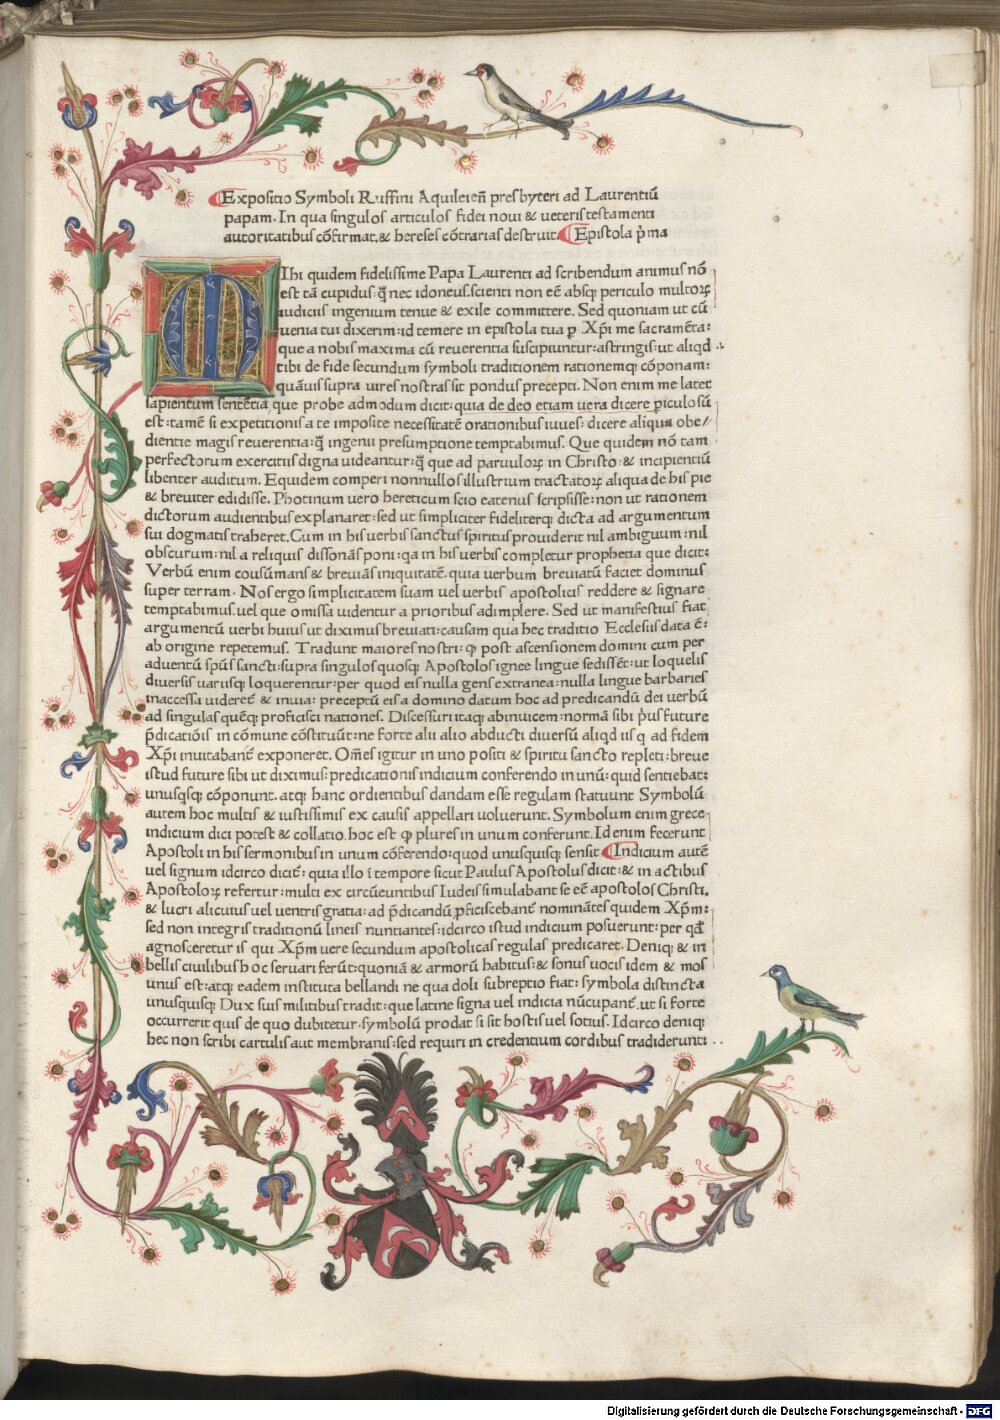 Expositio Symboli Ruffini Aquileień presbyteri ad Laurentiū
papam. In qua singulos articulos fidei noui & ueteris testamenti
autoritatibus cōfirmat, & hereses cōtrarias destruit. Epistola p̄ma
MIhi quidem fidelissime Papa Laurenti ad scribendum animus nō
est tā cupidus: q̄ nec idoneus. scienti non eē absq; periculo multoꝝ
iudiciis ingenium tenue & exile committere. Sed quoniam ut cū
uenia tui dixerim: id temere in epistola tua ꝑ Xp̄i me sacramēta:
que a nobis maxima cū reuerentia suscipiuntur: astringis: ut aliqd
tibi de fide secundum symboli traditionem rationemq; cōponam:
quāuis supra uires nostras sit pondus precepti. Non enim me latet
sapientum sentētia que probe admodum dicit: quia de deo etiam uera dicere ꝑiculosū
est: tamē si expetitionis a te imposite necessitatē orationibus iuues: dicere aliqua obe/
dientie magis reuerentia: q̄ ingenii presumptione temptabimus. Que quidem nō tam
perfectorum exercitiis digna uideantur: q̄ que ad paruuloꝝ in Christo: & incipientiū
libenter auditum. Equidem comperi nonnullos illustrium tractatoꝝ aliqua de his pie
& breuiter edidisse. Photinum uero hereticum scio eatenus scripsisse: non ut rationem
dictorum audientibus explanaret: sed ut simpliciter fideliterq; dicta ad argumentum
sui dogmatis traheret. Cum in his uerbis sanctus spiritus prouiderit nil ambiguum: nil
obscurum: nil a reliquis dissonās poni: qa in his uerbis completur prophetia que dicit:
Verbū enim cousūmans & breuiās iniquitatē. quia uerbum breuiatū faciet dominus
super terram. Nos ergo simplicitatem suam uel uerbis apostolicis reddere & signare
temptabimus. uel que omissa uidentur a prioribus adimplere. Sed ut manifestius fiat
argumentū uerbi huius ut diximus breuiati: causam qua hec traditio Ecclesiis data ē:
ab origine repetemus. Tradunt maiores nostri: q̶ post ascensionem domini cum per
aduentū sp̄us sancti: supra singulos quosq; Apostolos ignee lingue sedissēt: ut loquelis
diuersis uariisq; loquerentur: per quod eis nulla gens extranea: nulla lingue barbaries
inaccessa uideret̄ & inuia: preceptū eis a domino datum hoc ad predicandū dei uerbū
ad singulas quēq; proficisci nationes. Discessuri itaq; abinuicem: normā sibi p̄us future
p̄dicatiōis in cōmune cōstituūt: ne forte alii alio abducti diuersū aliqd iis q ad fidem
Xp̄i inuitabant̄ exponeret. Om̄es igitur in uno positi & spiritu sancto repleti: breue
istud future sibi ut diximus: predicationis indicium conferendo in unū: quid sentiebat:
unusqsq; cōponunt. atq; hanc ordientibus dandam esse regulam statuunt Symbolū
autem hoc multis & iustissimis ex causis appellari uoluerunt. Symbolum enim grece
indicium dici potest & collatio. hoc est q̶ plures in unum conferunt. Id enim fecerunt
Apostoli in his sermonibus in unum cōferendo: quod unusquisq; sensit Indicium autē
uel signum idcirco dicit̄: quia illo ī tempore sicut Paulus Apostolus dicit: & in actibus
Apostoloꝝ refertur: multi ex circūeuntibus Iudeis simulabant se eē apostolos Christi.
& lucri alicuius uel uentris gratia: ad p̄dicandū ꝓficiscebant̄ nominātes quidem Xp̄m:
sed non integris traditionū lineis nuntiantes: idcirco istud indicium posuerunt: per qd̄
agnosceretur is qui Xp̄m uere secundum apostolicas regulas predicaret. Deniq; & in
bellis ciuilibus hoc seruari ferūt: quoniā & armorū habitus: & sonus uocis idem & mos
unus est: atq; eadem instituta bellandi ne qua doli subreptio fiat: symbola distincta
unusquisq; Dux suis militibus tradit: que latine signa uel indicia nūcupant̄. ut si forte
occurrerit quis de quo dubitetur. symbolū prodat si sit hostis uel sotius. Idcirco deniq;
hec non scribi cartulis aut membranis: sed requiri in credentium cordibus tradiderunt:
Digitalisierung gefördert durch die Deutsche Forschungsgemeinschaft - DFG